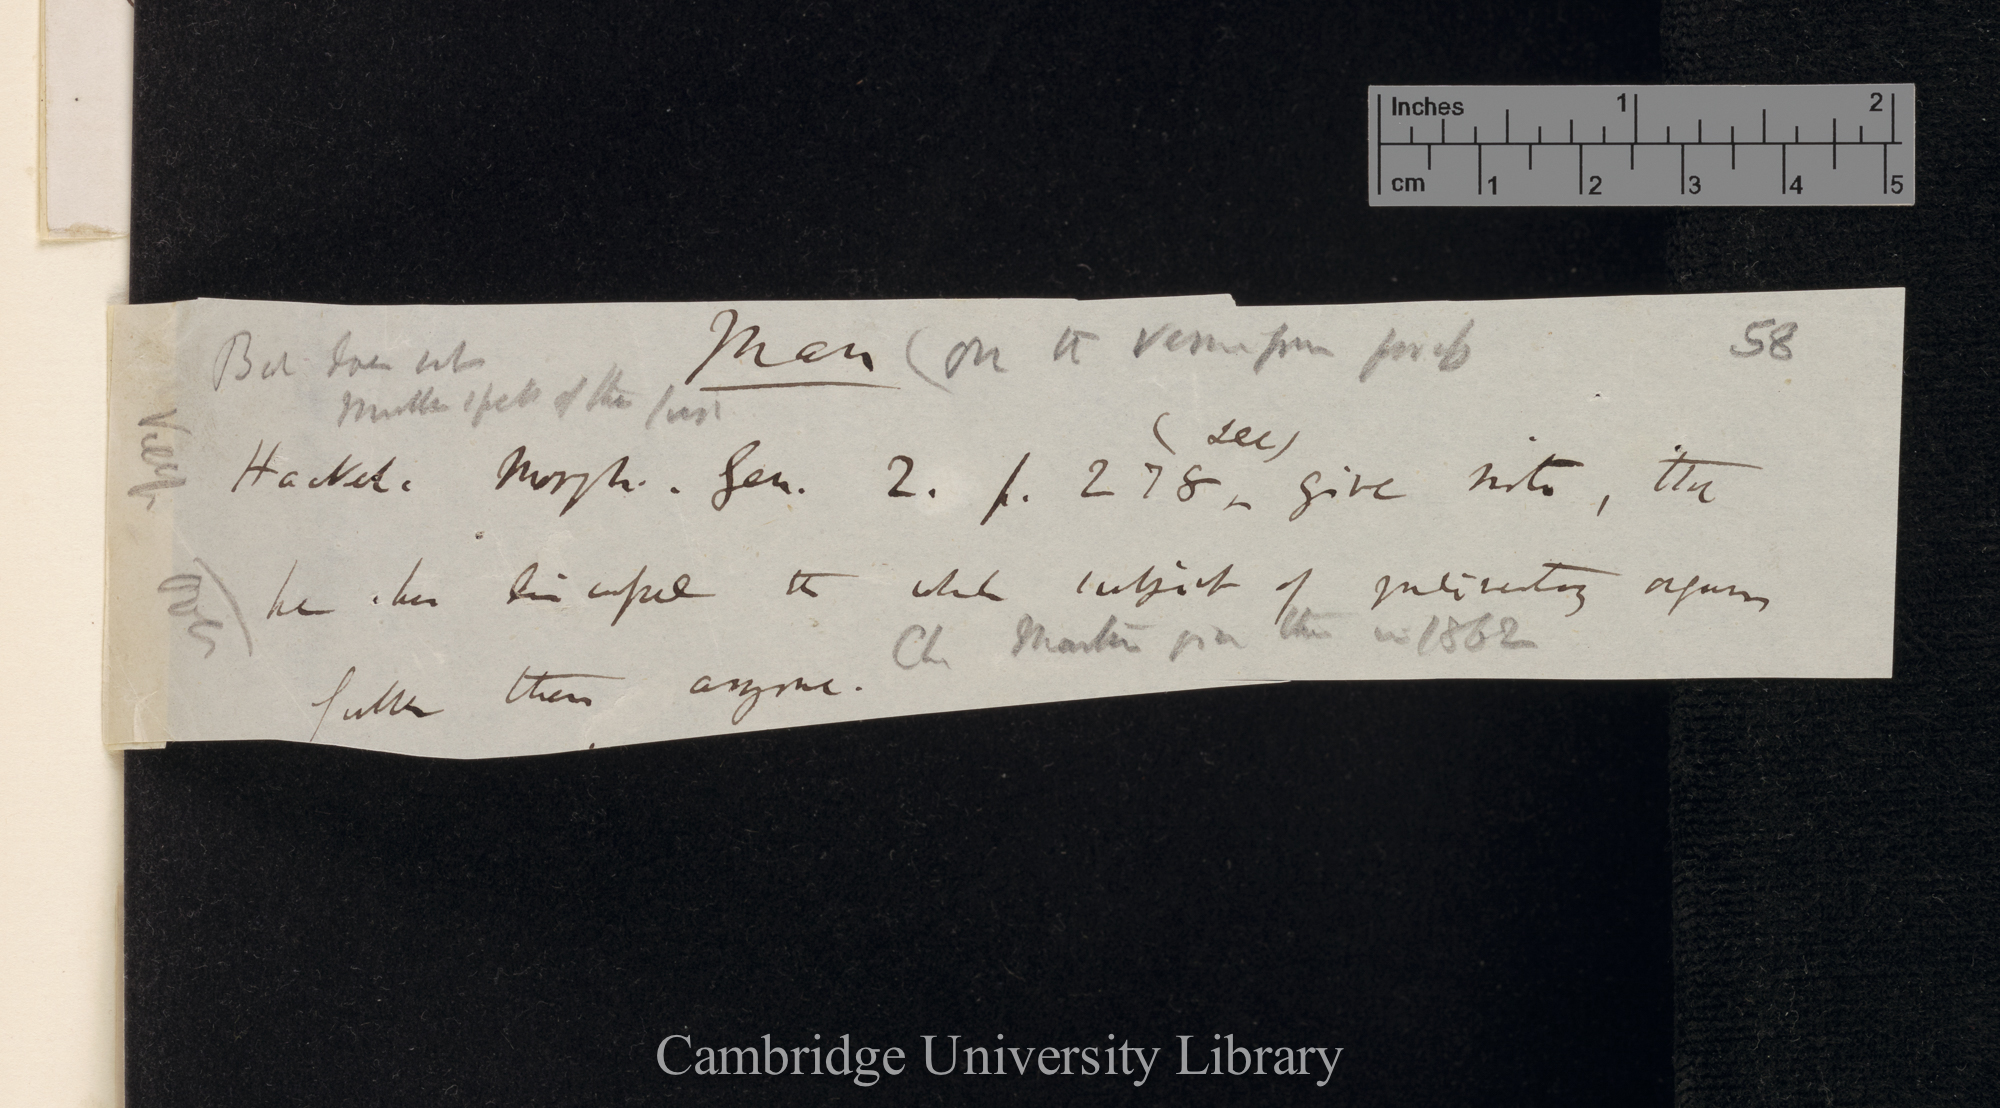 Man (on the Vermiform
58
But does not
Muller speaks of this
(see)
Häckel. Morph. Gen. 2. p. 278, give note, that
he has discussed the whole subject of rudimentary organs
Ch. Martin gives this in 1862
fuller than anyone.
Inches 1 2
cm 1 2 3 4 5
Cambridge University Library